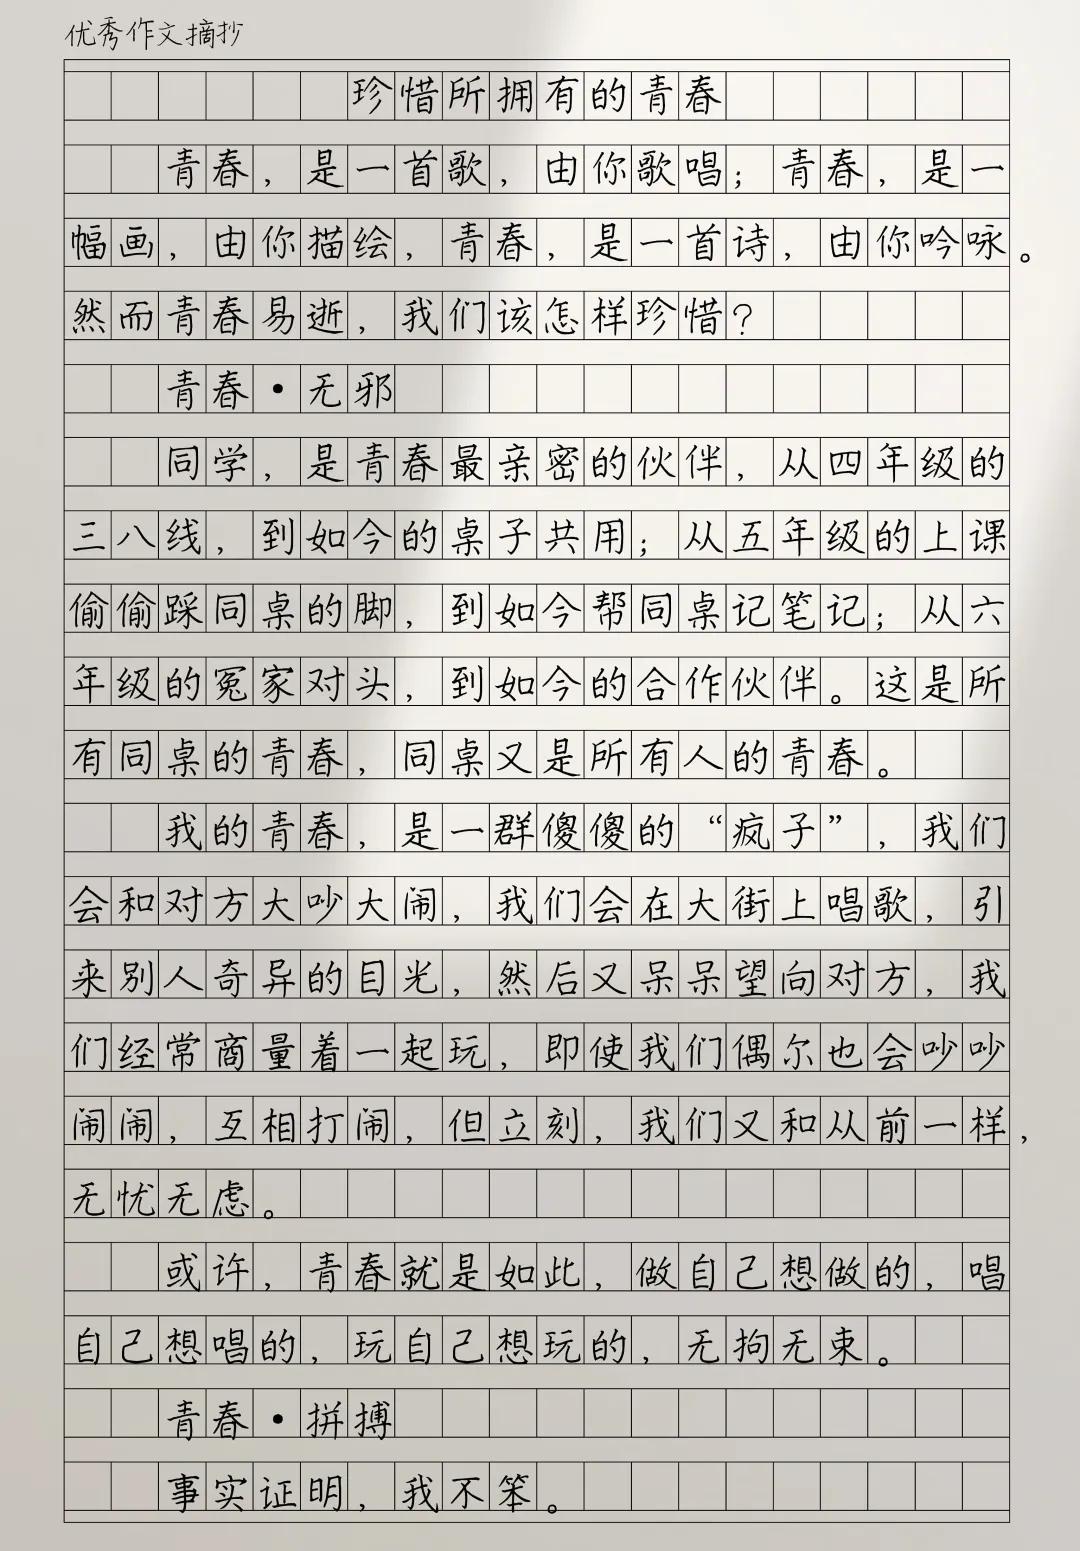 优秀作文摘抄
珍惜所拥有的青春
青春，是一首歌，由你歌唱；青春，是一
幅画，由你描绘，青春，是一首诗，由你吟咏。
然而青春易逝，我们该怎样珍惜？
青春·无邪
同学，是青春最亲密的伙伴，从四年级的
三八线，到如今的桌子共用；从五年级的上课
偷偷踩同桌的脚，到如今帮同桌记笔记；从六
年级的冤家对头，到如今的合作伙伴。这是所
有同桌的青春，同桌又是所有人的青春。
我的青春，是一群傻傻的“疯子”，我们
会和对方大吵大闹，我们会在大街上唱歌，引
来别人奇异的目光，然后又呆呆望向对方，我
们经常商量着一起玩，即使我们偶尔也会吵吵
闹闹，互相打闹，但立刻，我们又和从前一样，
无忧无虑。
或许，青春就是如此，做自己想做的，唱
自己想唱的，玩自己想玩的，无拘无束。
青春·拼搏
事实证明，我不笨。